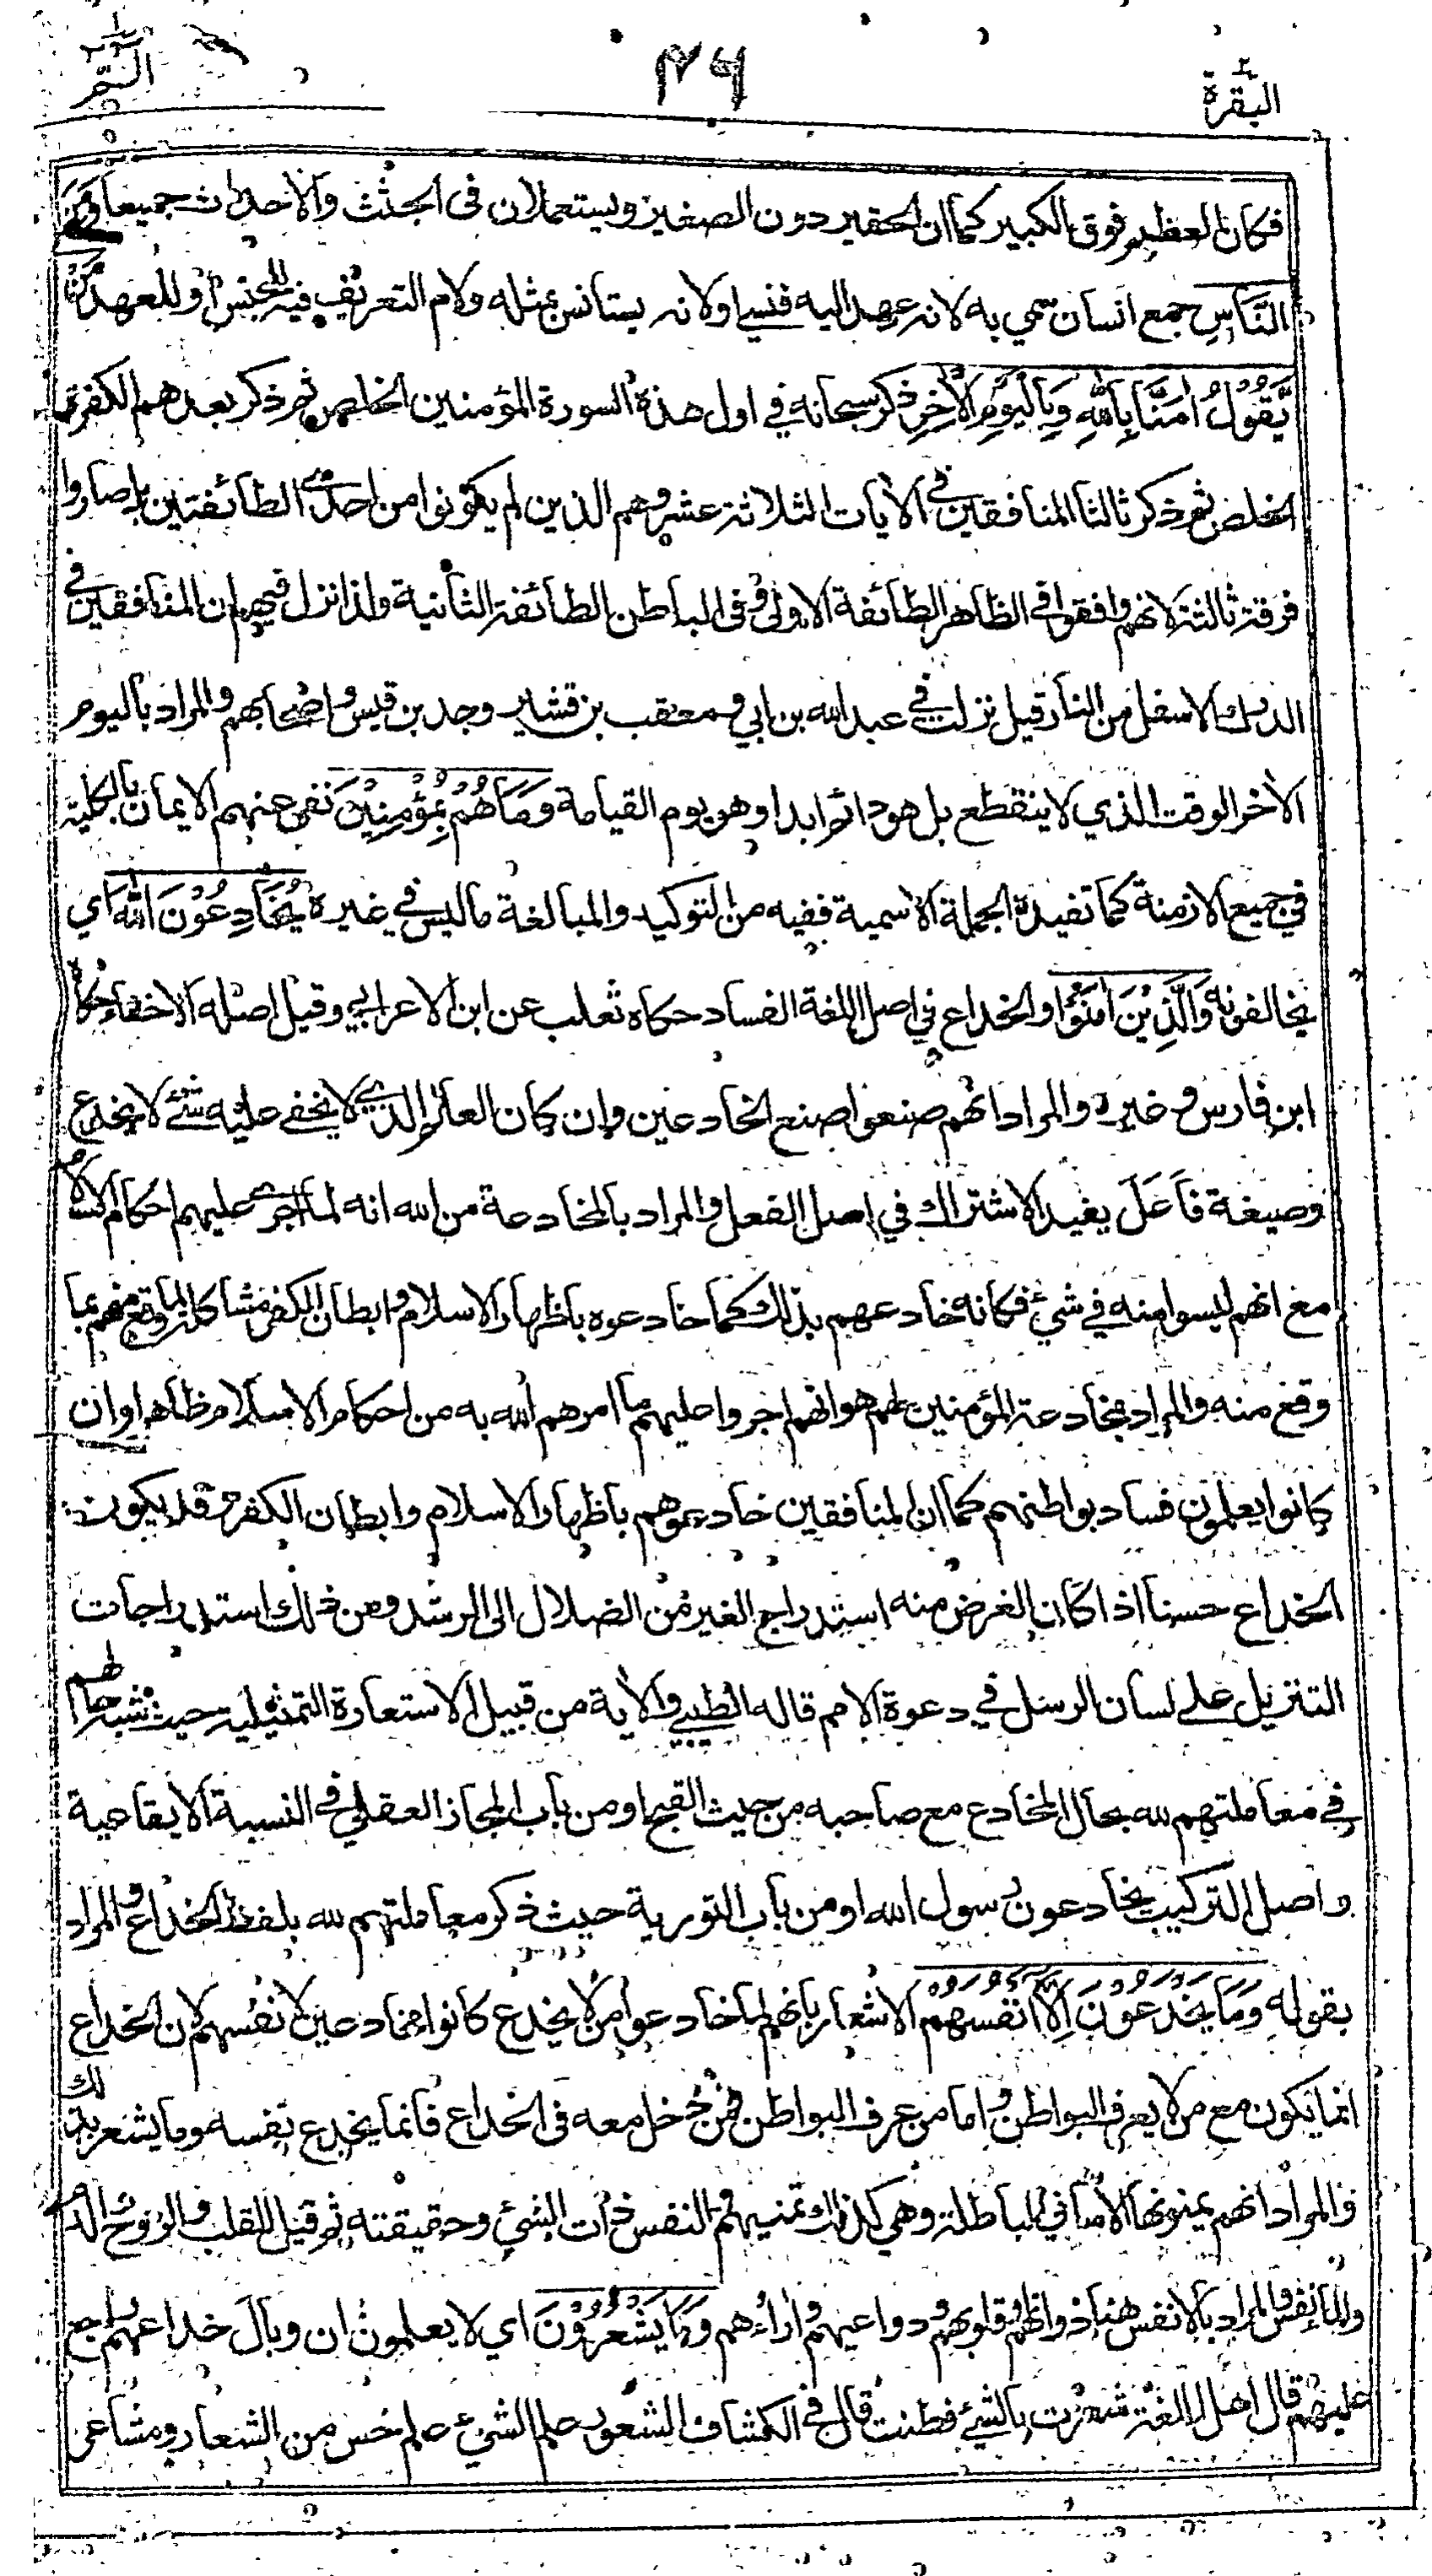 البقرة ٢
٤٦
الٓمّٓ ١
فكان العظيم فوق الكبير كما ان الحقير دون الصغير ويستعملان في الجثث والاحداث جميعا وَمِنَ
النَّاسِ جمع انسان سمي به لانه عهد اليه فنسي او لانه يستانس بمثله ولام التعريف فيه للجنس او للعهد مَنْ
يَّقُوْلُ اٰمَنَّا بِاللّٰهِ وَبِالْيَوْمِ الْاٰخِرِ ذكر سبحانه في اول هذه السورة المؤمنين الخلص ثم ذكر بعدهم الكفرة
الخلص ثم ذكر ثالثا المنافقين في الأيات الثلاثة عشر وهم الذين لم يكونوا من احدى الطائفتين بل صاروا
فرقة ثالثة لانهم وافقوا في الظاهر الطائفة الاولى وفي الباطن الطائفة الثانية ولذا نزل فيهم ان المنافقين في
الدرك الاسفل من النار قيل نزلت في عبد الله بن ابي ومعقب بن قشير وجد بن قيس واصحابهم والمراد باليوم
الأخر الوقت الذي لا ينقطع بل هو دائم ابدا وهو يوم القيامة وَمَا هُمْ بِمُؤْمِنِيْنَ نفى عنهم الايمان بالكلية
في جميع الازمنة كما تفيده الجملة الاسمية ففيه من التوكيد والمبالغة ما ليس في غيره يُخَادِعُوْنَ اللّٰهَ اي
يخالفونه وَالَّذِيْنَ اٰمَنُوْا والخداع في اصل اللغة الفساد حكاه ثعلب عن ابن الاعرابي وقيل اصله الاخفاء حكاه
ابن فارس وغيره والمراد انهم صنعوا صنع الخادعين وان كان العالم الذي لا يخفى عليه شئ لا يخدع
وصيغة فَاعَلَ يفيد الاشتراك في اصل الفعل والمراد بالمخادعة من الله انه لما اجرى عليهم احكام الاسلام
مع انهم ليسوا منه في شئ فكانه خادعهم بذلك كما خادعوه باظهار الاسلام وابطان الكفر مشاكلة لما وقع منهم بما
وقع منه والمراد بمخادعة المؤمنين لهم هو انهم اجروا عليهم ما امرهم الله به من احكام الاسلام ظاهرا وان
كانوا يعلمون فساد بواطنهم كما ان المنافقين خادعوهم باظهار الاسلام وابطان الكفر وقد يكون
الخداع حسنا اذا كان الغرض منه استدراج الغير من الضلال الى الرشد ومن ذلك استدراجات
التنزيل على لسان الرسل في دعوة الامم قاله الطيبي والأية من قبيل الاستعارة التمثيلية حيث شبه حالهم
في معاملتهم لله بحال المخادع مع صاحبه من حيث القبح او من باب المجاز العقلي في النسبة الايقاعية
واصل التركيب يخادعون رسول الله او من باب التورية حيث ذكر معاملتهم لله بلفظ الخداع والمراد
بقوله وَمَا يَخْدَعُوْنَ اِلَّا اَنْفُسَهُمْ الاشعار بانهم لما خادعوا من لا يخدع كانوا مخادعين لانفسهم لان الخداع
انما يكون مع من لا يعرف البواطن واما من عرف البواطن فمن دخل معه في الخداع فانما يخدع نفسه وما يشعر بذلك
والمراد انهم يمنونها الاماني الباطلة وهي كذلك تمنيهم والنفس ذات الشئ وحقيقته ثم قيل للقلب والروح الدم
والماء نفس والمراد بالانفس هنا ذواتهم وقلوبهم ودواعيهم وأراءهم وَمَا يَشْعُرُوْنَ اي لا يعلمون ان وبال خداعهم راجع
عليهم قال اهل اللغة شعرت بالشئ فطنت قال في الكشاف الشعور علم الشئ علم حس من الشعار ومشاعر